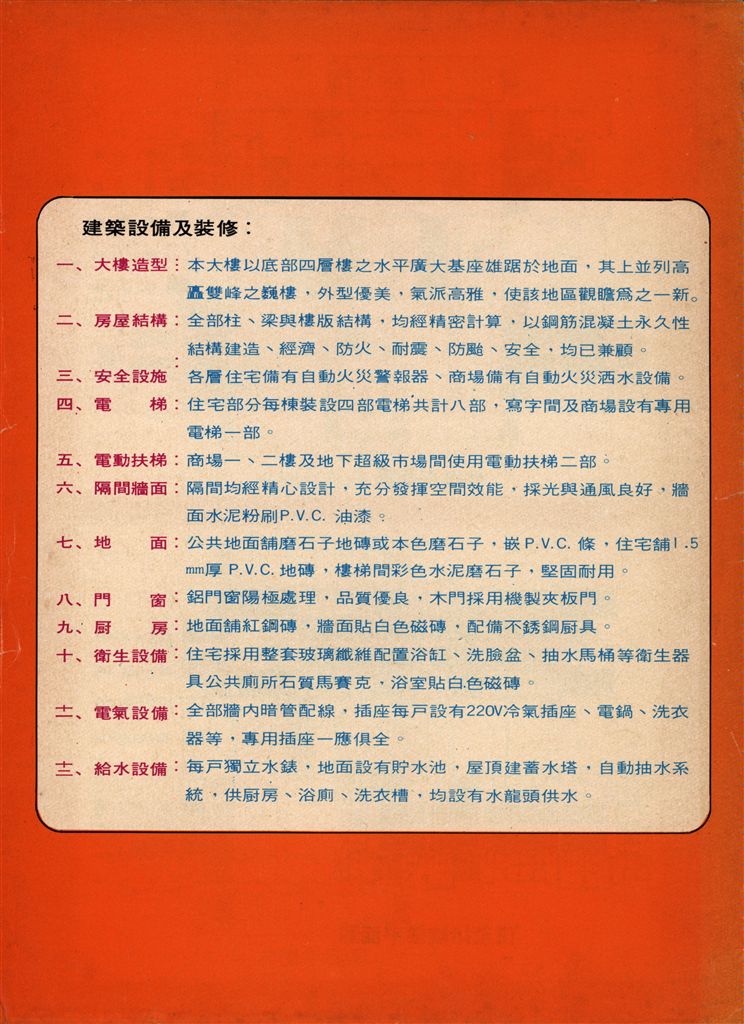 建築設備及裝修：
一、大樓造型：本大樓以底部四層樓之水平廣大基座雄踞於地面，其上並列高
矗雙峰之巍樓，外型優美，氣派高雅，使該地區觀瞻爲之一新。
二、房屋結構：全部柱、梁與樓版結構，均經精密計算，以鋼筋混凝土永久性
結構建造、經濟、防火、耐震、防颱、安全，均已兼顧。
三、安全設施：各層住宅備有自動火災警報器、商場備有自動火災洒水設備。
四、電　　梯：住宅部分每棟裝設四部電梯共計八部，寫字間及商場設有專用
電梯一部。
五、電動扶梯：商場一、二樓及地下超級市場間使用電動扶梯二部。
六、隔間牆面：隔間均經精心設計，充分發揮空間效能，採光與通風良好，牆
面水泥粉刷P.V.C. 油漆。
七、地　　面：公共地面舖磨石子地磚或本色磨石子，嵌P.V.C. 條，住宅舖1.5
mm厚 P.V.C. 地磚，樓梯間彩色水泥磨石子，堅固耐用。
八、門　　窗：鋁門窗陽極處理，品質優良，木門採用機製夾板門。
九、厨　　房：地面舖紅鋼磚，牆面貼白色磁磚，配備不銹鋼厨具。
十、衛生設備：住宅採用整套玻璃纖維配置浴缸、洗臉盆、抽水馬桶等衛生器
具公共廁所石質馬賽克，浴室貼白色磁磚。
十一、電氣設備：全部牆内暗管配線，插座每戸設有220V冷氣插座、電鍋、洗衣
器等，專用插座一應俱全。
十二、給水設備：每戸獨立水錶，地面設有貯水池，屋頂建蓄水塔，自動抽水系
統，供厨房、浴廁、洗衣槽，均設有水龍頭供水。